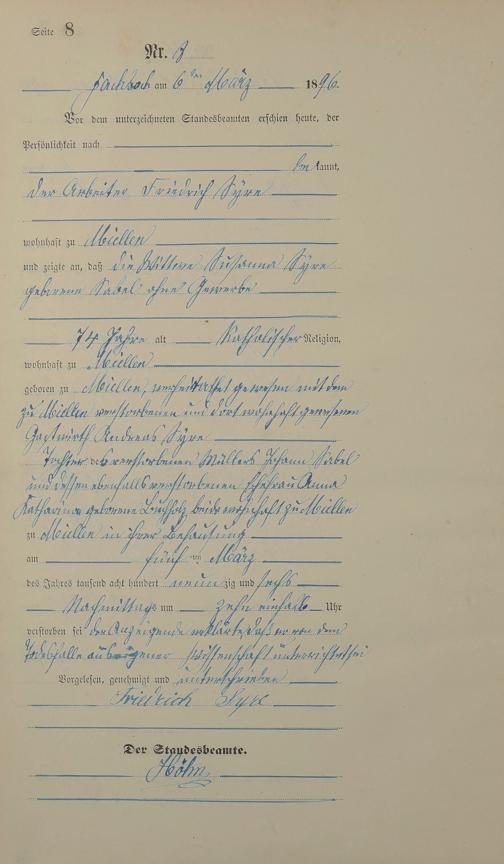 Seite 8
Nr. 8
Fachbach am 6ten März 1896.
Vor dem unterzeichneten Standesbeamten erschien heute, der
Persönlichkeit nach
be kannt,
der Arbeiter Friedrich Syre
wohnhaft zu Miellen
und zeigte an, daß die Wittwe Susanna Syre
geborene Sabel ohne Gewerbe
74 Jahre alt Katholischer Religion,
wohnhaft zu Miellen
geboren zu Miellen, verheirathet gewesen mit dem
zu Miellen verstorbenen und dort wohnhaft gewesenen
Gastwirth Andreas Syre
Tochter des verstorbenen Müllers Johann Sabel
und dessen ebenfalls verstorbenen Ehefrau Anna
Katharina geborene Buchholz beide wohnhaft zu Miellen
zu Miellen in ihrer Behausung
am fünf ten März
des Jahres tausend acht hundert neun zig und sechs
Nachmittags um zehn einhalb Uhr
verstorben sei der Anzeigende erklärte daß er von dem
Todesfalle aus eigener Wissenschaft unterrichtet sei
Vorgelesen, genehmigt und unterschrieben
Friedrich Syre
Der Standesbeamte.
Höhn